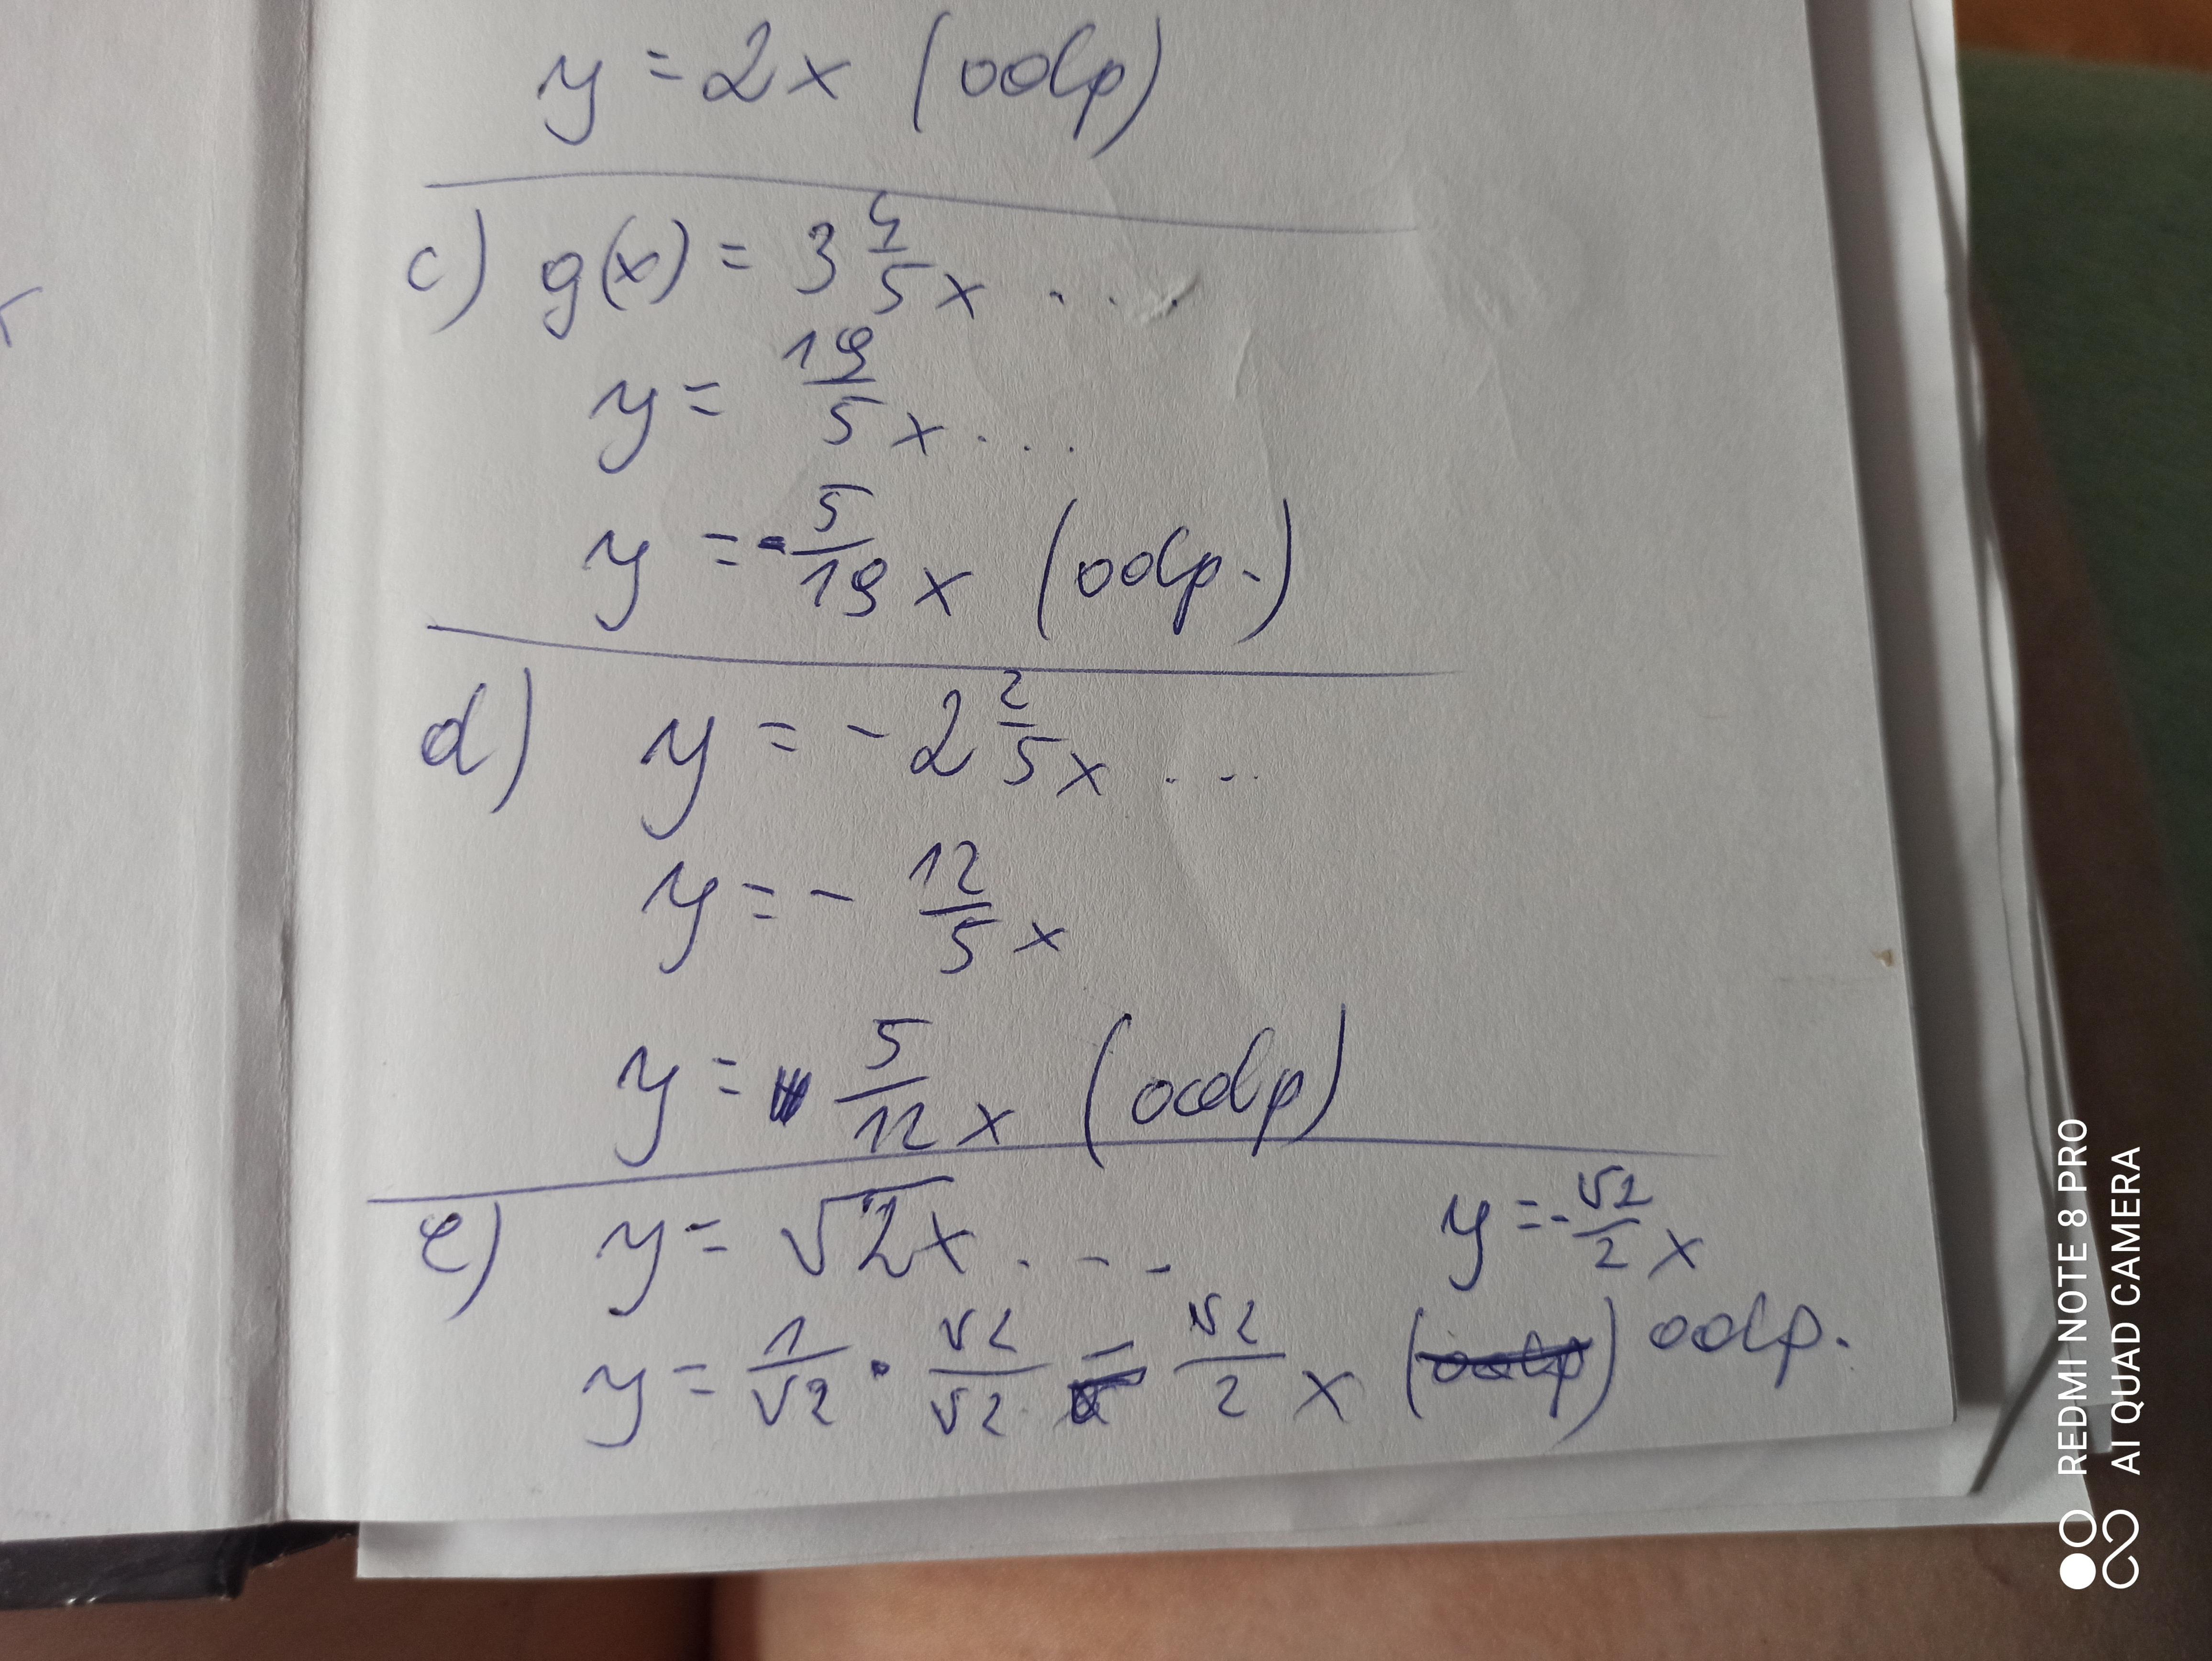 y = 2x (odp)
c) g(x) = 3 4/5 x ...
y = 19/5 x ...
y = - 5/19 x (odp.)
d) y = - 2 2/5 x ...
y = - 12/5 x
y = 5/12 x (odp)
e) y = √2x ... y = - √2/2 x
y = 1/√2 · √2/√2 = √2/2 x (odp) odp.
REDMI NOTE 8 PRO
AI QUAD CAMERA